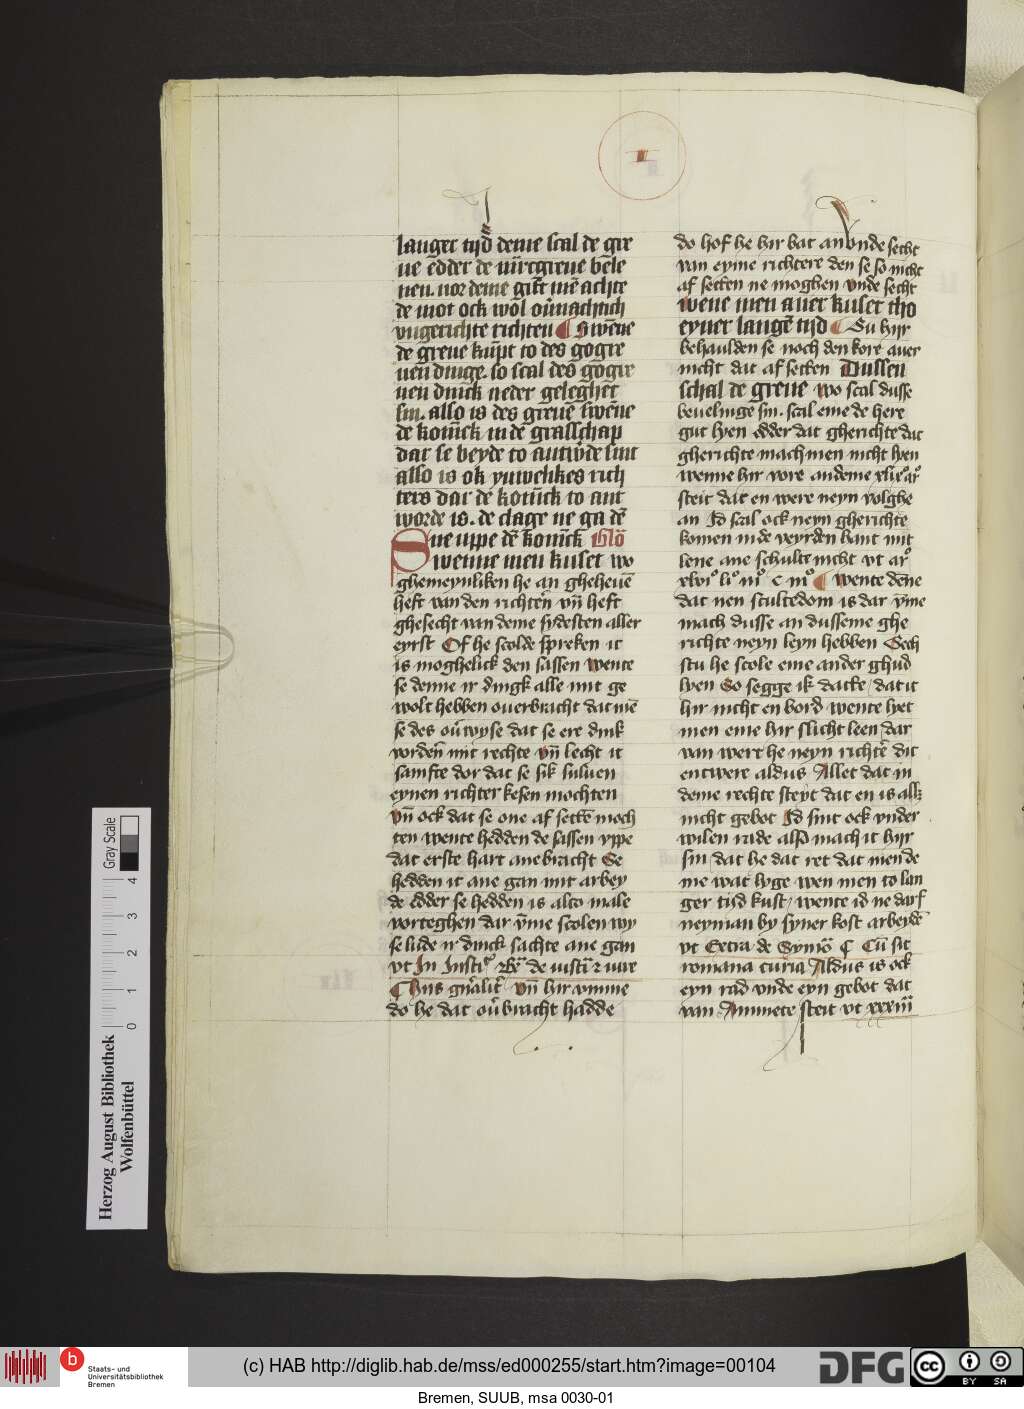 I
langer tijd deme scal de gre
ue edder de vm̄regreue bele
nen. vor deme gift mē achte
de mot ock wol ou̅nachtich
vngerichte richten ¶ Swēne
de greue kūpt to des gogre
uen dinge. so scal des gogre
uen dinck neder geleghēt
sin. also is des greuē swēne
de konīck in de grasschap
dat se beyde to antw̄de sint
also is ok ynwelikes rich
ters dar de konīck to ant
worde is. de clage ne ga dē
ne uppe dē konīck Glō
Swenne men kuset wo
ghemeynliken he an gheheuē
heft van den richtern̄ vn̄ heft
ghesecht van deme sydesten aller
eyrst Of he scolde spreken it
is moghelick den sassen wente
se denne ir dingk alle mit ge
wolt hebben ouerbracht dat mē
se des ou̅wyse dat se ere dink
vordēn mit rechte vn̄ lecht it
samfte dor dat se sik suluen
eynen richter kesen mochten
vn̄ ock dat se one af settē moch
ten wente hedden de sassen vppe
dat erste hart anebracht Se
hedden it ane gan mit arbey
de edder se hedden is alto male
vorteghen dar v̄me scolen wy
se lude ir dinck sachte ane gan
vt In Insti
do he dat ou̅bracht hadde
do hof he hir bat an vnde secht
van eyme richtere den se so nicht
af setten ne moghen vnde secht
wene men auer kuset tho
eyner langē tijd ¶ Su hyr
behaulden se noch den kore auer
nicht dat af setten Dussen
schal de greue wo scal dusse
beuelinge sin. scal eme de here
gut lyen edder dat gherichte dat
gherichte mach men nicht lyen
wenne hir vore an deme
steit dat en were neyn volghe
an Id scal ock neyn gherichte
komen in de veyrden hant mit
lene ane schulte nicht vt ar̄
¶ wente dēne
dat nen scultedom is dar v̄me
mach dusse an dusseme ghe
richte neyn leyn hebben Sech
stu he scole eme ander ghud
lyen So segge ik dat ke dat it
hir nicht en bord wente het
men eme hir slicht leen dar
van wert he neyn richtē dit
entwere aldus Allet dat in
deme rechte steyt dat en is all
nicht gebot Id sint ock vnder
wilen rade also mach it hyr
sin dat he dat ret dat men de
me wat lyge wen men to lan
ger tijd kust wente id ne darf
neyman by syner kost arbeydē
vt Extra de Symō C Cū sit
romana curia Aldus is ock
eyn rad vnde eyn gebot dat
van Ammete steit vt xxxiij
Gray Scale
4 3 2 1 0
Herzog August Bibliothek
Wolfenbüttel
b
Staats- und
Universitätsbibliothek
Bremen
(c) HAB http://diglib.hab.de/mss/ed000255/start.htm?image=00104
DFG
cc
BY SA
Bremen, SUUB, msa 0030-01